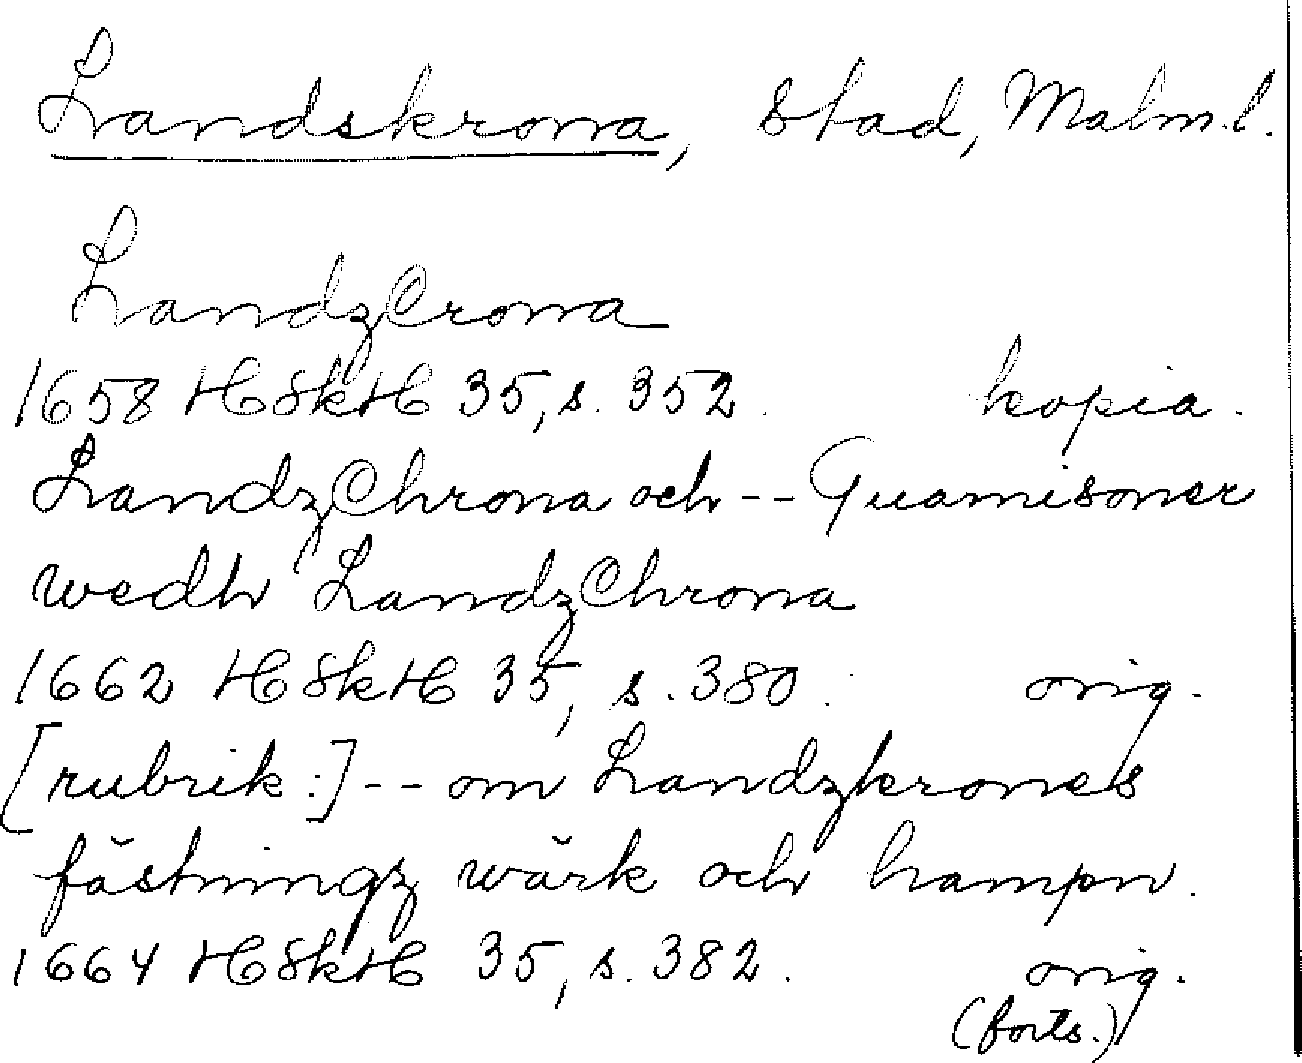 Landskrona, stad, Malm.l.
LandzCrona
1658 HSkH 35, s. 352. kopia.
LandzChrona och -- Guarnisoner
wedh LandzChrona
1662 HSkH 35, s. 380. orig.
[rubrik:] -- om Landzkrones
fästningz wärk och hampn.
1664 HSkH 35, s. 382. orig.
(forts.)